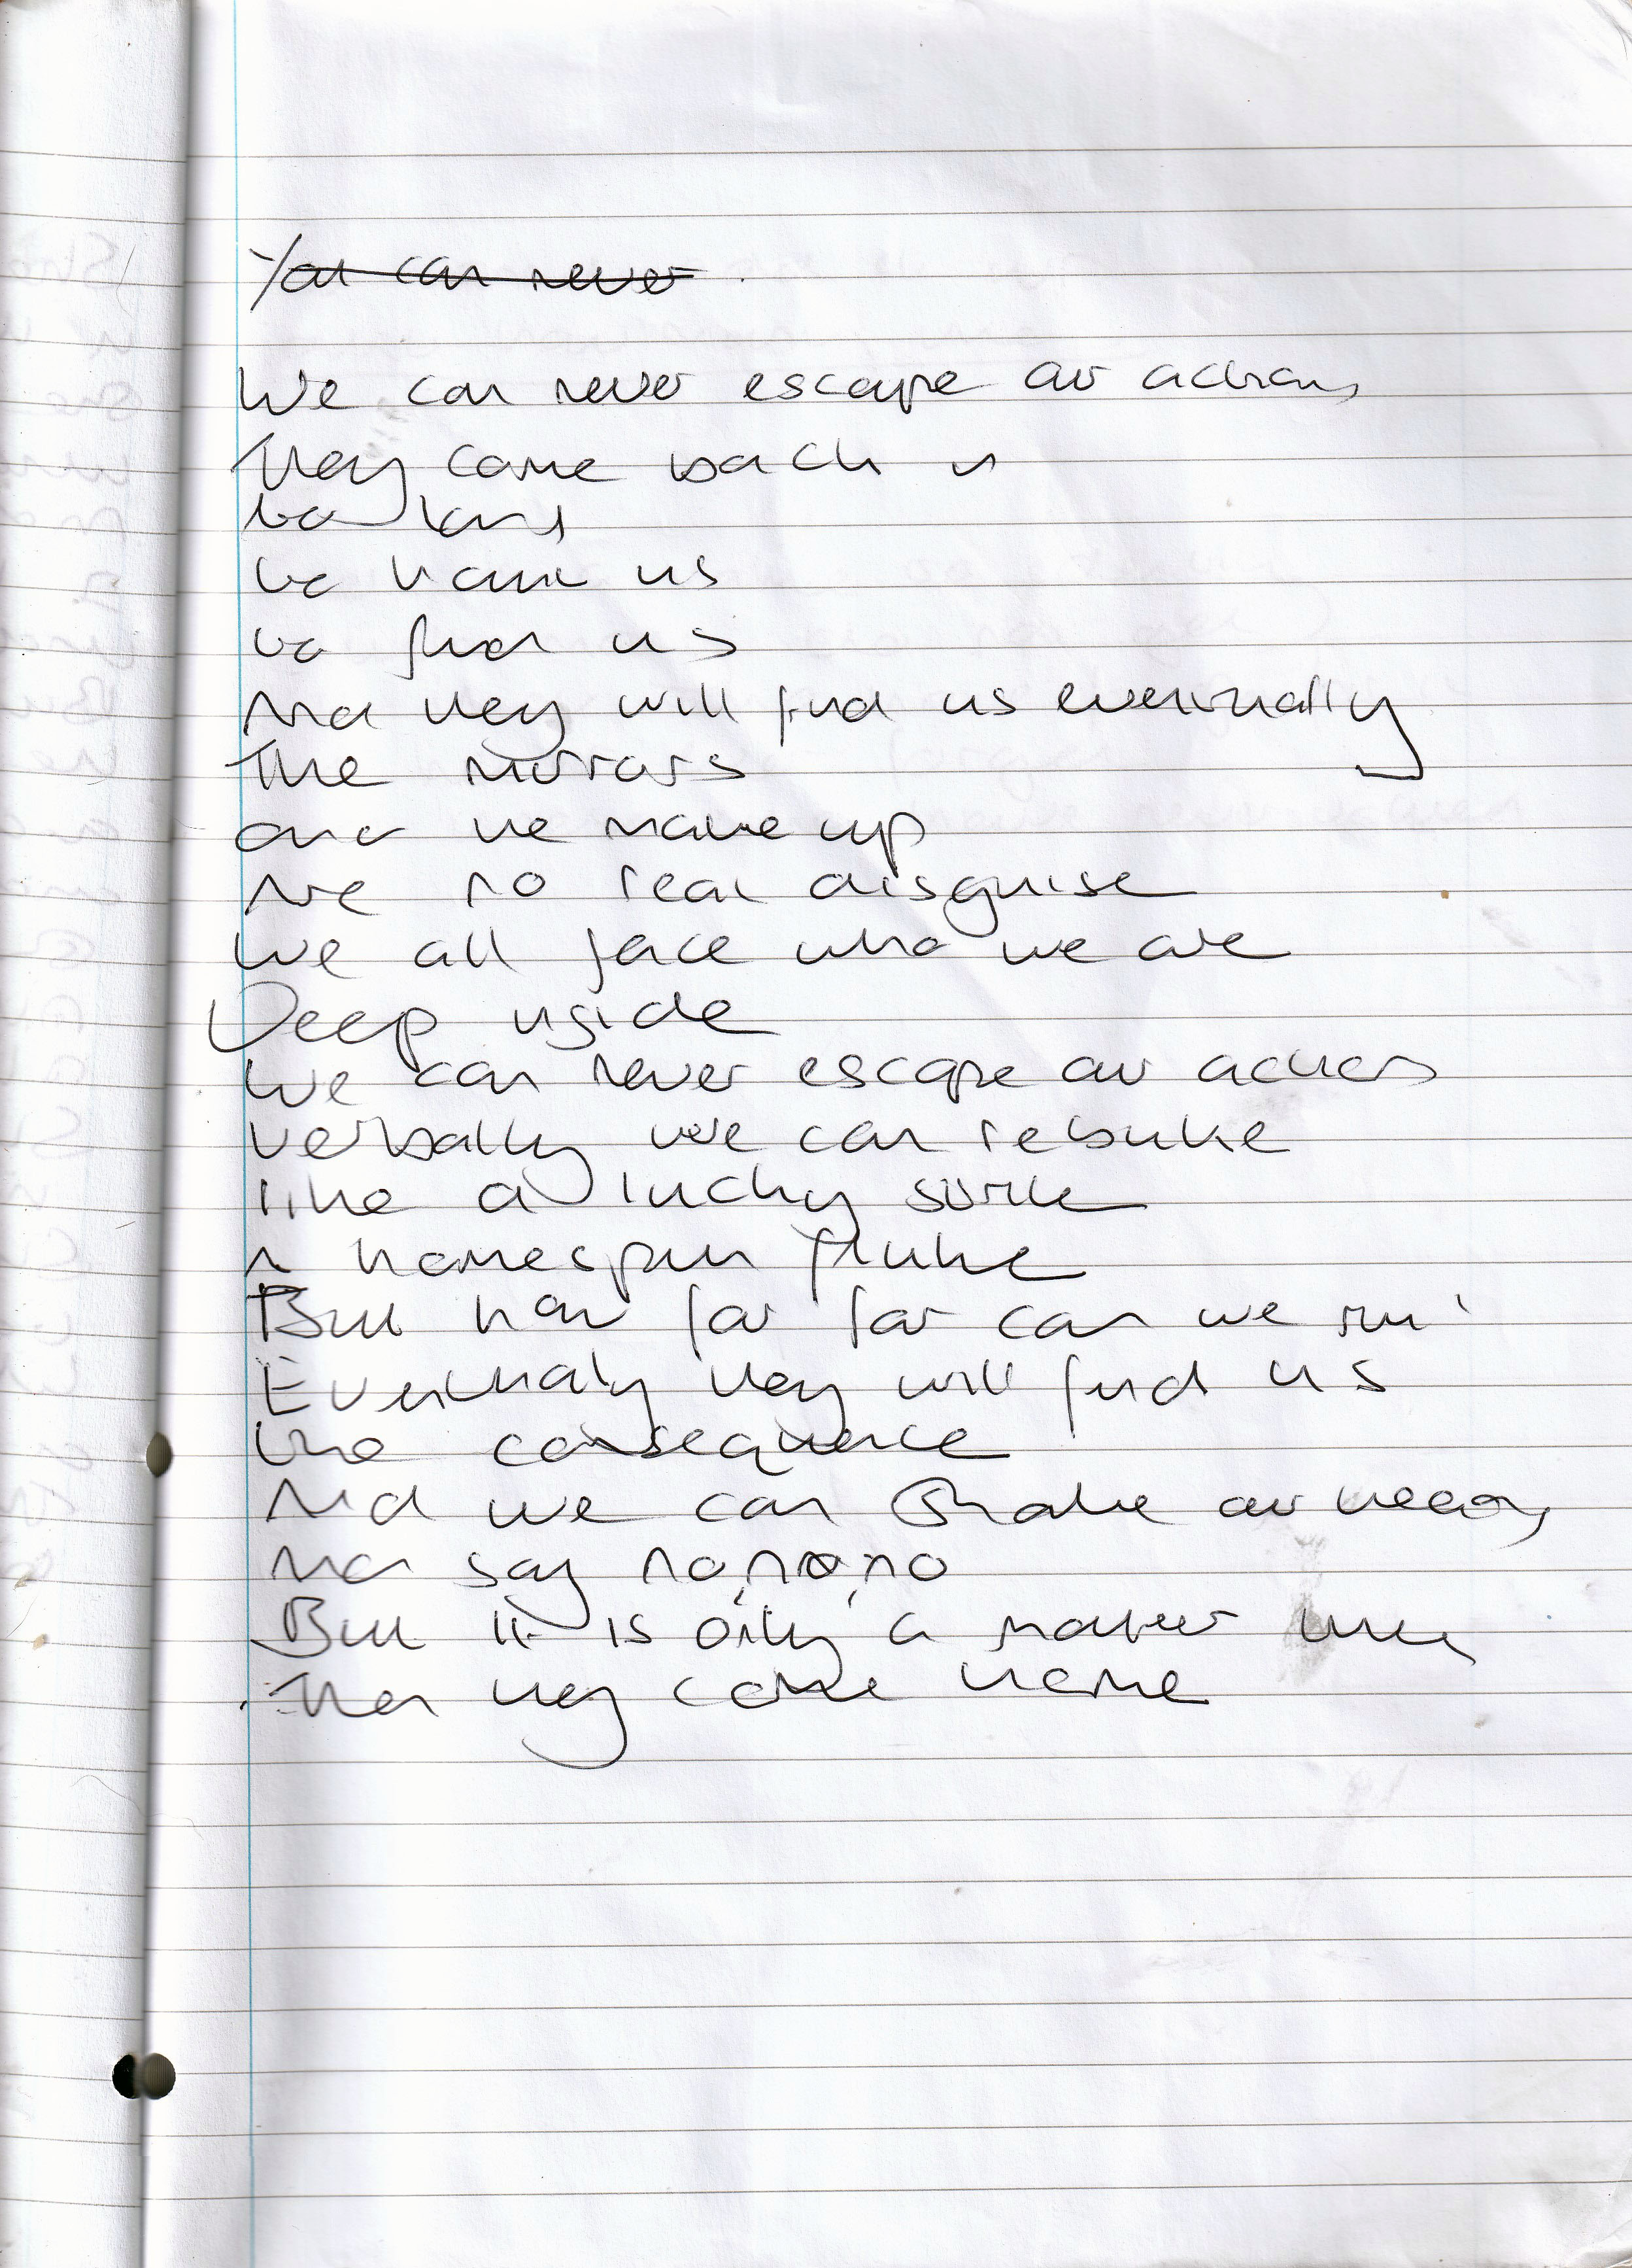 You can never
We can never escape our actions
They come back
to
to haunt us
to find us
And they will find us eventually
The mirrors
and the make up
Are no real disguise
We all face who we are
Deep inside
We can never escape our actions
verbally we can rebuke
like a lucky strike
A homespun fluke
But how far far can we run
Eventually they will find us
the consequence
And we can shake our heads
And say no, no, no
But it is only a matter time
Then they come home